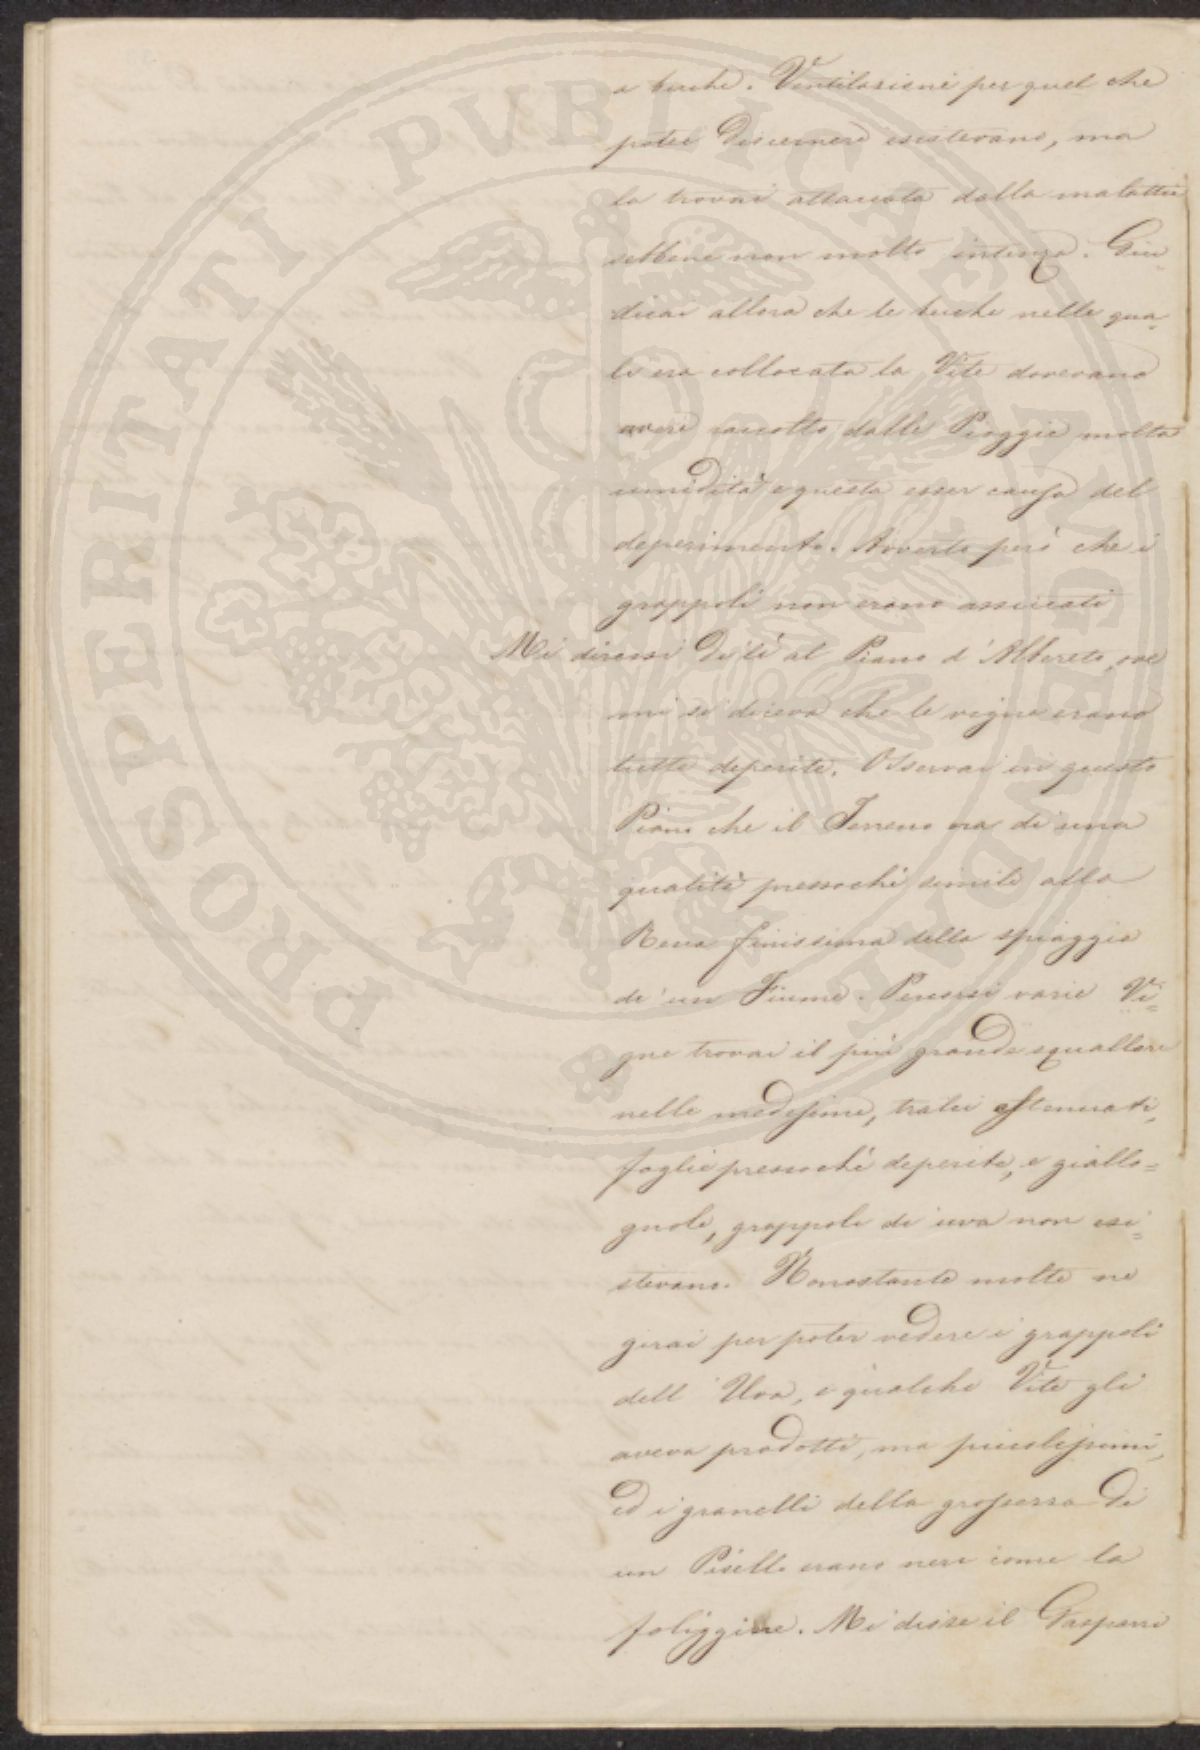 a buche. Ventilazione per quel che
potei discernere esistevano, ma
la trovai attaccata dalla malattia
sebbene non molto intenza. Giu
dicai allora che le buche nelle qua-
li era collocata la Vite dovevano
avere raccolto dalle Pioggie molta
umidità e questa esser causa del
deperimento. Avverto però che i
grappoli non erano assiccati
Mi diressi di lì al Piano d'Albereto, ove
mi si diceva che le vigne erano
tutte deperite. Osservai in questo
Piano che il Terreno era di una
qualità pressochè simile alla
Rena finissima della spiaggia
di un Fiume. Percorsi varie Vi=
gne trovai il più grande squallore
nelle medesime, tralci estenuati,
foglie pressochè deperite, e giallo=
gnole, grappoli di uva non esi=
stevano. Nonostante molte ne
girai per poter vedere i grappoli
dell'Uva, e qualche Vite gli
aveva prodotti, ma piccolissimi,
ed i granelli della grossezza di
un Pisello erano neri come la
foliggine. Mi disse il Gasparri
PROSPERITATI PUBLICAE AUGENDAE